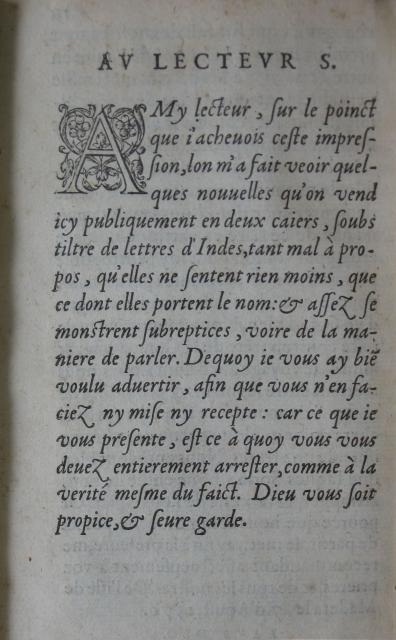 AV LECTEVR S.
AMy lecteur, ſur le poinct
que i'acheuois ceſte impreſ-
ſion, lon m'a fait veoir quel-
ques nouuelles qu'on vend
icy publiquement en deux caiers, ſoubs
tiltre de lettres d'Indes, tant mal à pro-
pos, qu'elles ne ſentent rien moins, que
ce dont elles portent le nom: & aſſez ſe
monſtrent ſubreptices, voire de la ma-
niere de parler. Dequoy ie vous ay biẽ
voulu aduertir, afin que vous n'en fa-
ciez ny miſe ny recepte: car ce que ie
vous preſente, eſt ce à quoy vous vous
deuez entierement arreſter, comme à la
verité meſme du faict. Dieu vous ſoit
propice, & ſeure garde.